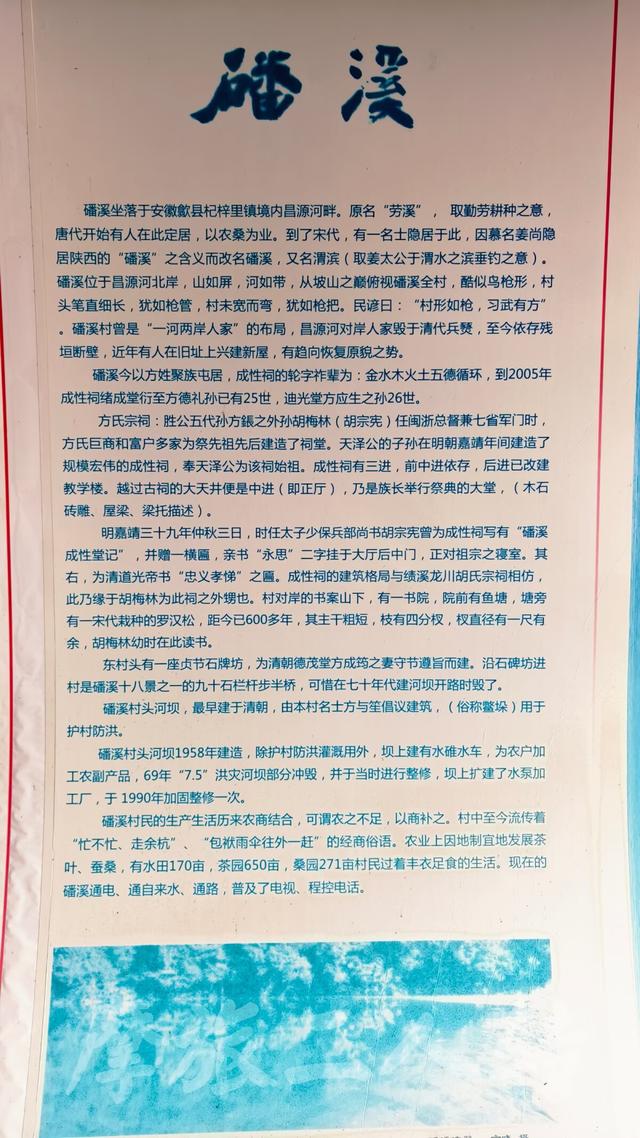 磻溪
磻溪坐落于安徽歙县杞梓里镇境内昌源河畔。原名“劳溪”， 取勤劳耕种之意，
唐代开始有人在此定居，以农桑为业。到了宋代，有一名士隐居于此，因慕名姜尚隐
居陕西的“磻溪”之含义而改名磻溪，又名渭滨（取姜太公于渭水之滨垂钓之意）。
磻溪位于昌源河北岸，山如屏，河如带，从坡山之巅俯视磻溪全村，酷似鸟枪形，村
头笔直细长，犹如枪管，村未宽而弯，犹如枪把。民谚曰：“村形如枪，习武有方”
。磻溪村曾是“一河两岸人家”的布局，昌源河对岸人家毁于清代兵燹，至今依存残
垣断壁，近年有人在旧址上兴建新屋，有趋向恢复原貌之势。
磻溪今以方姓聚族屯居，成性祠的轮字祚辈为：金水木火土五德循环，到2005年
成性祠绪成堂衍至方德礼孙已有25世，迪光堂方应生之孙26世。
方氏宗祠：胜公五代孙方鋹之外孙胡梅林（胡宗宪）任闽浙总督兼七省军门时，
方氏巨商和富户多家为祭先祖先后建造了祠堂。天泽公的子孙在明朝嘉靖年间建造了
规模宏伟的成性祠，奉天泽公为该祠始祖。成性祠有三进，前中进依存，后进已改建
教学楼。越过古祠的大天井便是中进（即正厅），乃是族长举行祭典的大堂，（木石
砖雕、屋梁、梁托描述）。
明嘉靖三十九年仲秋三日，时任太子少保兵部尚书胡宗宪曾为成性祠写有“磻溪
成性堂记”，并赠一横匾，亲书“永思”二字挂于大厅后中门，正对祖宗之寝室。其
右，为清道光帝书“忠义孝悌”之匾。成性祠的建筑格局与绩溪龙川胡氏宗祠相仿，
此乃缘于胡梅林为此祠之外甥也。村对岸的书案山下，有一书院，院前有鱼塘，塘旁
有一宋代栽种的罗汉松，距今已600多年，其主干粗短，枝有四分杈，杈直径有一尺有
余，胡梅林幼时在此读书。
东村头有一座贞节石牌坊，为清朝德茂堂方成筠之妻守节遵旨而建。沿石碑坊进
村是磻溪十八景之一的九十石栏杆步半桥，可惜在七十年代建河坝开路时毁了。
磻溪村头河坝，最早建于清朝，由本村名士方与笙倡议建筑，（俗称鳌垛）用于
护村防洪。
磻溪村头河坝1958年建造，除护村防洪灌溉用外，坝上建有水碓水车，为农户加
工农副产品，69年“7.5”洪灾河坝部分冲毁，并于当时进行整修，坝上扩建了水泵加
工厂，于 1990年加固整修一次。
磻溪村民的生产生活历来农商结合，可谓农之不足，以商补之。村中至今流传着
“忙不忙、走余杭”、“包袱雨伞往外一赶”的经商俗语。农业上因地制宜地发展茶
叶、蚕桑，有水田170亩，茶园650亩，桑园271亩村民过着丰衣足食的生活。现在的
磻溪通电、通自来水、通路，普及了电视、程控电话。
摩旅